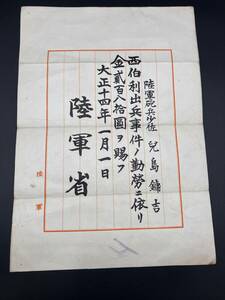 陸軍砲兵少佐 兒島錦吉
西伯利出兵事件ノ勤勞ニ依リ
金貳百八拾圓ヲ賜フ
大正十四年一月一日
陸軍省
陸軍